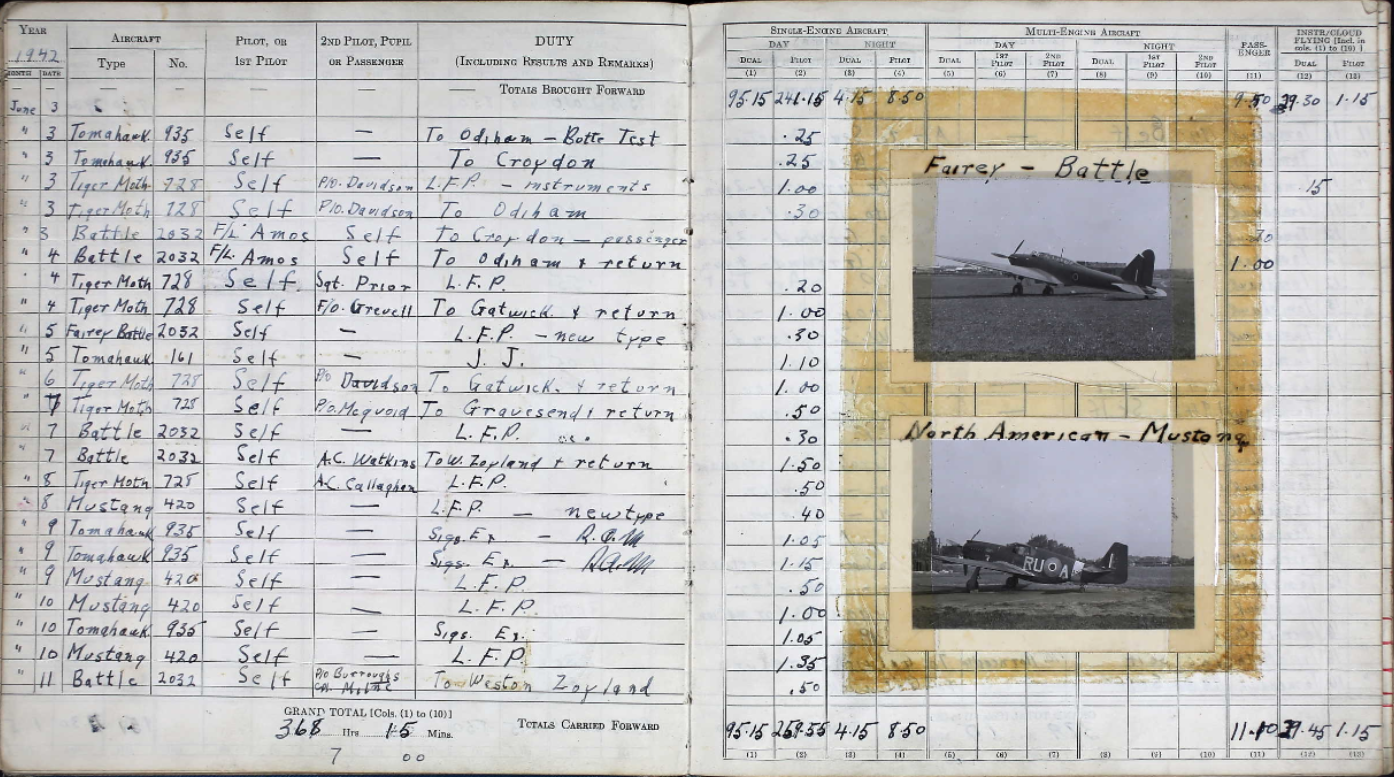 YEAR AIRCRAFT PILOT, OR 1ST PILOT 2ND PILOT, PUPIL OR PASSENGER DUTY (INCLUDING RESULTS AND REMARKS) SINGLE-ENGINE AIRCRAFT MULTI-ENGINE AIRCRAFT PASS-ENGER INSTR/CLOUD FLYING [Incl. in cols. (1) to (10)]
1942 DAY NIGHT DAY NIGHT
MONTH DATE Type No. DUAL PILOT DUAL PILOT DUAL 1ST PILOT 2ND PILOT DUAL 1ST PILOT 2ND PILOT DUAL PILOT
(1) (2) (3) (4) (5) (6) (7) (8) (9) (10) (11) (12) (13)
— — — — — — — TOTALS BROUGHT FORWARD
June 3 95.15 241.15 4.15 8.50 9.50 39.30 1.15
" 3 Tomahawk 935 Self — To Odiham — Botte Test .25
" 3 Tomahawk 935 Self — To Croydon .25
" 3 Tiger Moth 728 Self P/O. Davidson L.F.P. — instruments 1.00 .15
" 3 Tiger Moth 728 Self P/O. Davidson To Odiham .30
" 3 Battle 2032 F/L. Amos Self To Croydon — passenger .20
" 4 Battle 2032 F/L. Amos Self To Odiham & return 1.00
" 4 Tiger Moth 728 Self Sgt. Prior L.F.P. .20
" 4 Tiger Moth 728 Self F/O. Grevell To Gatwick & return 1.00
" 5 Fairey Battle 2032 Self — L.F.P. — new type .30
" 5 Tomahawk 161 Self — J. J. 1.10
" 6 Tiger Moth 728 Self P/O Davidson To Gatwick & return 1.00
" 7 Tiger Moth 728 Self P/O. Mcquoid To Gravesend & return .50
" 7 Battle 2032 Self — L.F.P. .30
" 7 Battle 2032 Self A.C. Watkins To W. Zoyland & return 1.50
" 8 Tiger Moth 728 Self A.C. Callaghan L.F.P. .50
" 8 Mustang 420 Self — L.F.P. — new type .40
" 9 Tomahawk 935 Self — Sigs. Ex — 1.05
" 9 Tomahawk 935 Self — Sigs. Ex. — 1.15
" 9 Mustang 420 Self — L.F.P. .50
" 10 Mustang 420 Self — L.F.P. 1.00
" 10 Tomahawk 935 Self — Sigs. Ex. 1.05
" 10 Mustang 420 Self — L.F.P. 1.35
" 11 Battle 2032 Self P/O Burroughs Milne To Weston Zoyland .50
Fairey — Battle
North American — Mustang
RU A
GRAND TOTAL [Cols. (1) to (10)]
368 Hrs 15 Mins. TOTALS CARRIED FORWARD 95.15 259.55 4.15 8.50 11.10 39.45 1.15
7 00
(1) (2) (3) (4) (5) (6) (7) (8) (9) (10) (11) (12) (13)